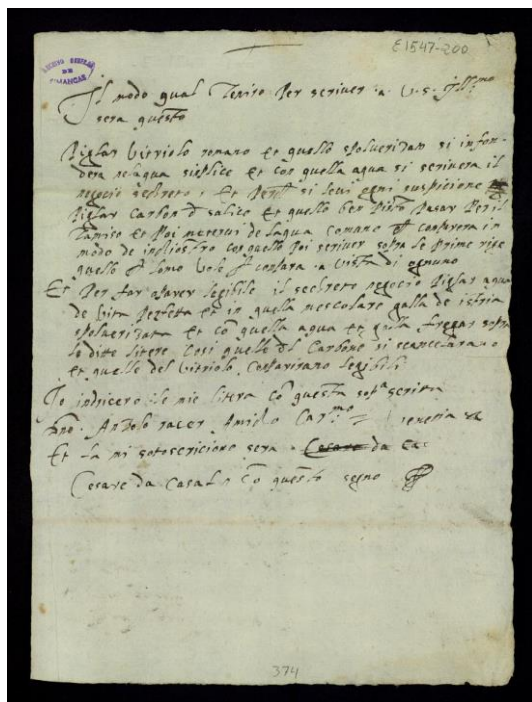 E1547-200
ARCHIVO GENERAL
DE
SIMANCAS
Il modo qual Teniro Per scriver a V. S. Ill.mo
sera questo
Piglar vitriolo romano et quello spolverizato si infon
dera nelaqua simplice et con quella aqua si scrivera il
negocio secreto, et si levi ogni suspicione
Piglar Carbon d salice et quello ben Pasar Per il
Tamiso et Poi meterui de laqua Comuna in
modo de ingliostro con quello Poi scriver sopra le Prime rige
quello l omo vole a vista di ognuno
Et Per far aparer legibile il secreto negocio Piglar aqua
de vita Perfetta et in quella mescolare galla de istria
spolverizata et cõ quella aqua et galla fregar sopra
le ditte litere Cosi quelle dl Carbone si scancellarano
et quelle del vitriolo, Comparirano legibili
Io indricero le mie litera Cõ questa sop.a scritta
Amico Car.mo venetia
Et la mi sotoscricione sera Cesare da Ca
Cesare da Casal Cõ questo segno
374